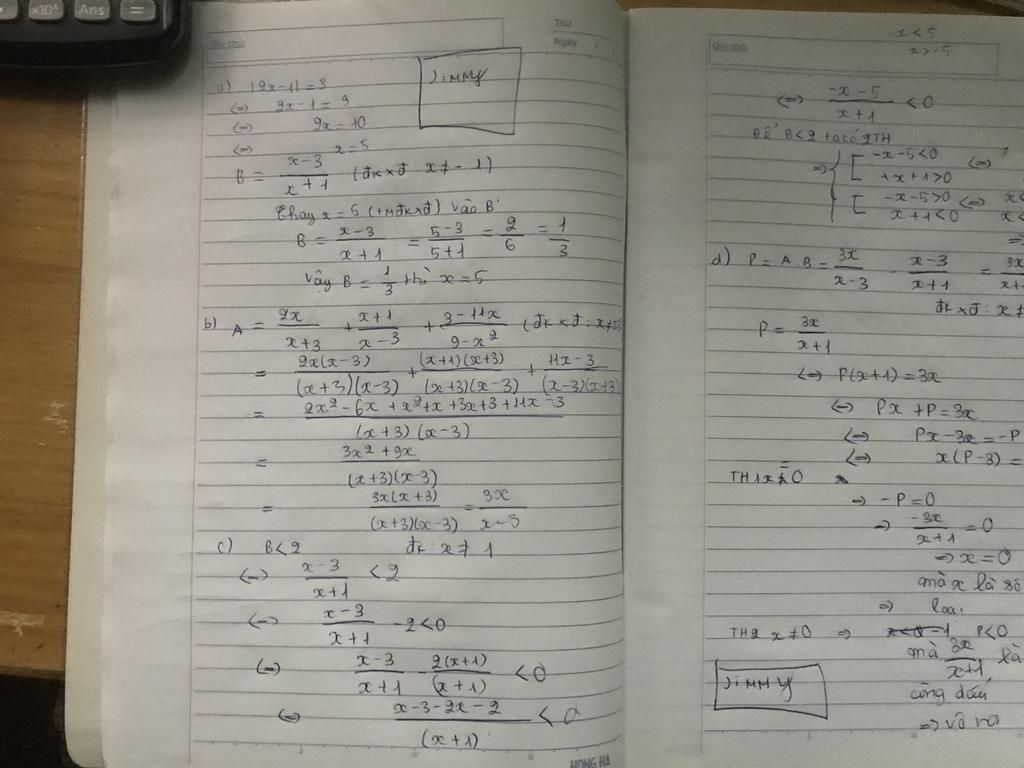 ×10ˣ Ans =
Ghi chú:
Thứ
Ngày / /
JIMMY
a) |2x-1| = 3
<=> 2x-1 = 9
<=> 2x = 10
<=> x = 5
B = (x-3)/(x+1) (đkxđ: x ≠ -1)
Thay x = 5 (tmđkxđ) vào B
B = (x-3)/(x+1) = (5-3)/(5+1) = 2/6 = 1/3
Vậy B = 1/3 thì x = 5
b) A = 2x/(x+3) + (x+1)/(x-3) + (3-11x)/(9-x²) (đkxđ: x≠
= 2x(x-3)/(x+3)(x-3) + (x+1)(x+3)/(x+3)(x-3) + (11x-3)/(x-3)(x+3)
= (2x²-6x+x²+x+3x+3+11x-3)/(x+3)(x-3)
= (3x²+9x)/(x+3)(x-3)
= 3x(x+3)/(x+3)(x-3) = 3x/(x-3)
c) B < 2 đk: x ≠ 1
<=> (x-3)/(x+1) < 2
<=> (x-3)/(x+1) - 2 < 0
<=> (x-3)/(x+1) - 2(x+1)/(x+1) < 0
<=> (x-3-2x-2)/(x+1) < 0
HỒNG HÀ
Ghi chú:
x < 5
x > -5
<=> (-x-5)/(x+1) < 0
Để B < 2 ta có 2TH
=> { [ -x-5<0 <=>
+x+1>0
[ -x-5>0 <=> x<
x+1<0 x<
=>
d) P = A.B = 3x/(x-3) . (x-3)/(x+1) = 3x/x+
đkxđ: x ≠
P = 3x/(x+1)
<=> P(x+1) = 3x
<=> Px + P = 3x
<=> Px - 3x = -P
<=> x(P-3) =
TH1 x = 0
=> -P = 0
=> -3x/(x+1) = 0
=> x = 0
mà x là số
=> loại
TH2 x ≠ 0 => P<0
mà 3x/(x+1) là
cùng dấu
=> vô
JIMMY